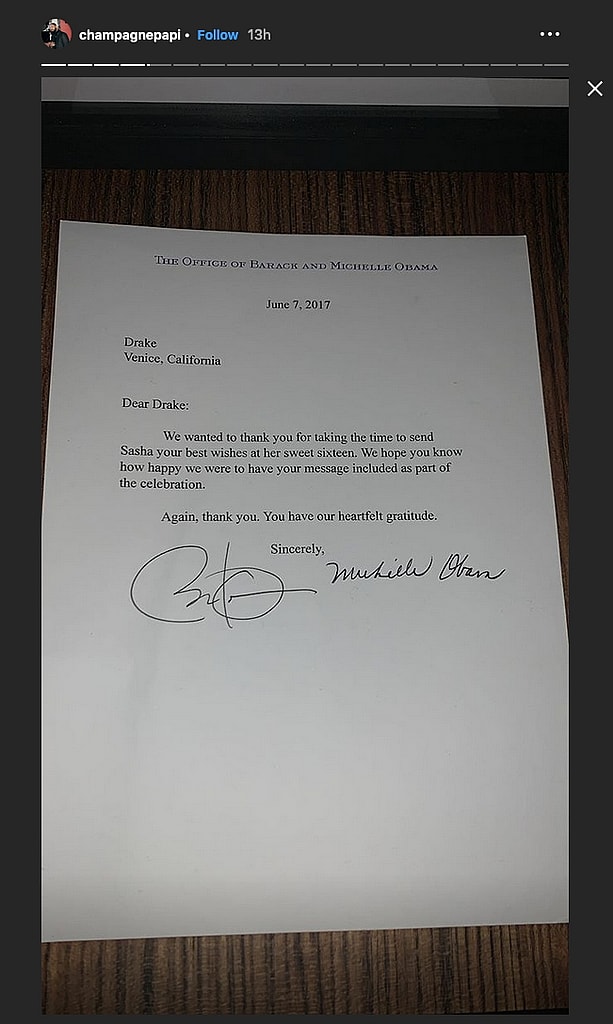 champagnepapi • Follow 13h
THE OFFICE OF BARACK AND MICHELLE OBAMA
June 7, 2017
Drake
Venice, California
Dear Drake:
We wanted to thank you for taking the time to send
Sasha your best wishes at her sweet sixteen. We hope you know
how happy we were to have your message included as part of
the celebration.
Again, thank you. You have our heartfelt gratitude.
Sincerely,
Michelle Obama